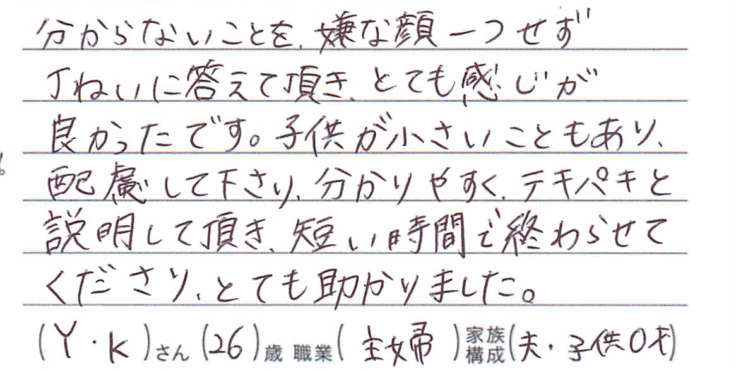 分からないことを、嫌な顔一つせず
丁ねいに答えて頂き、とても感じが
良かったです。子供が小さいこともあり、
配慮して下さり、分かりやすく、テキパキと
説明して頂き、短い時間で終わらせて
くださり、とても助かりました。
(Y・K)さん(26)歳 職業(主婦)家族構成(夫・子供0才)